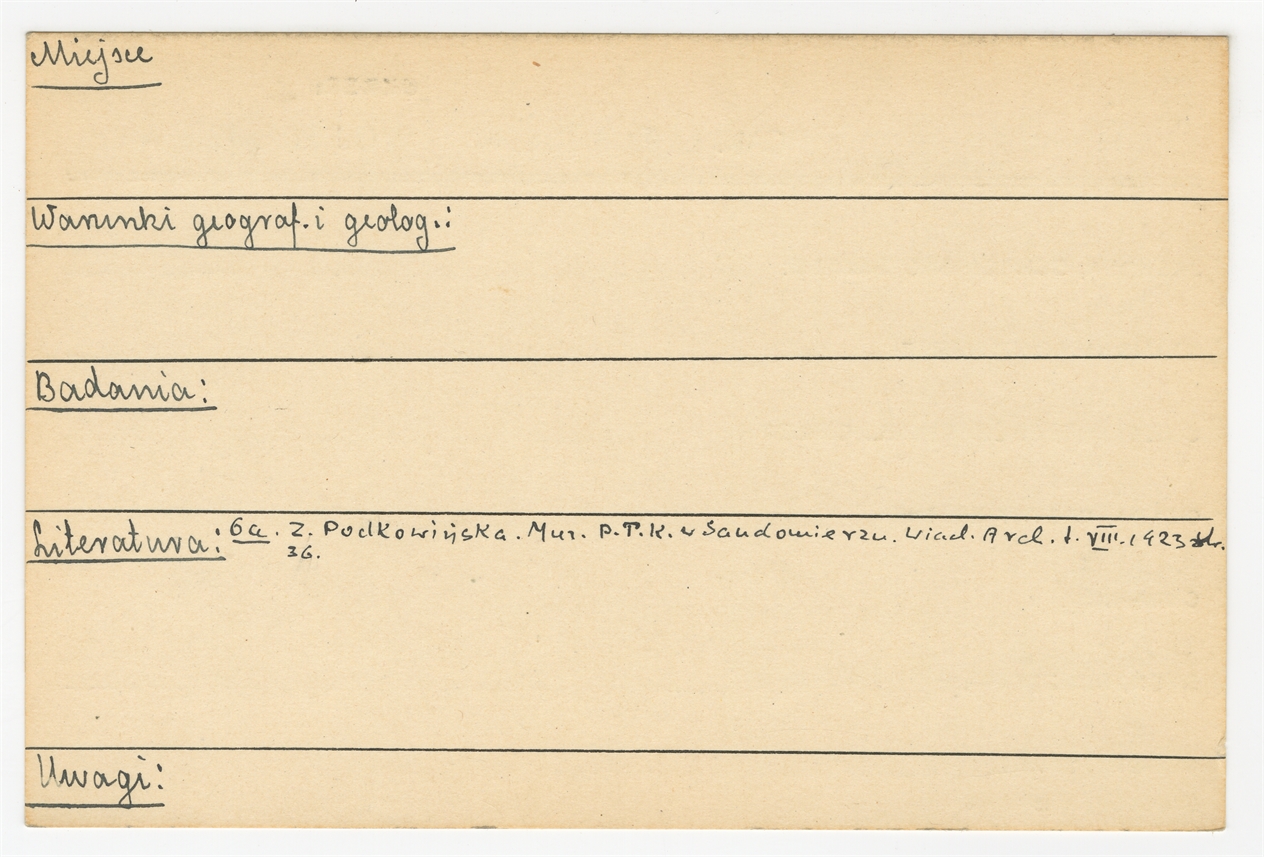 Miejsce
Warunki geograf. i geolog.:
Badania:
Literatura: 6a. Z. Podkowińska. Muz. P.T.K. w Sandomierzu. Wiad. Arch. t. VIII. 1923 str.
36.
Uwagi: